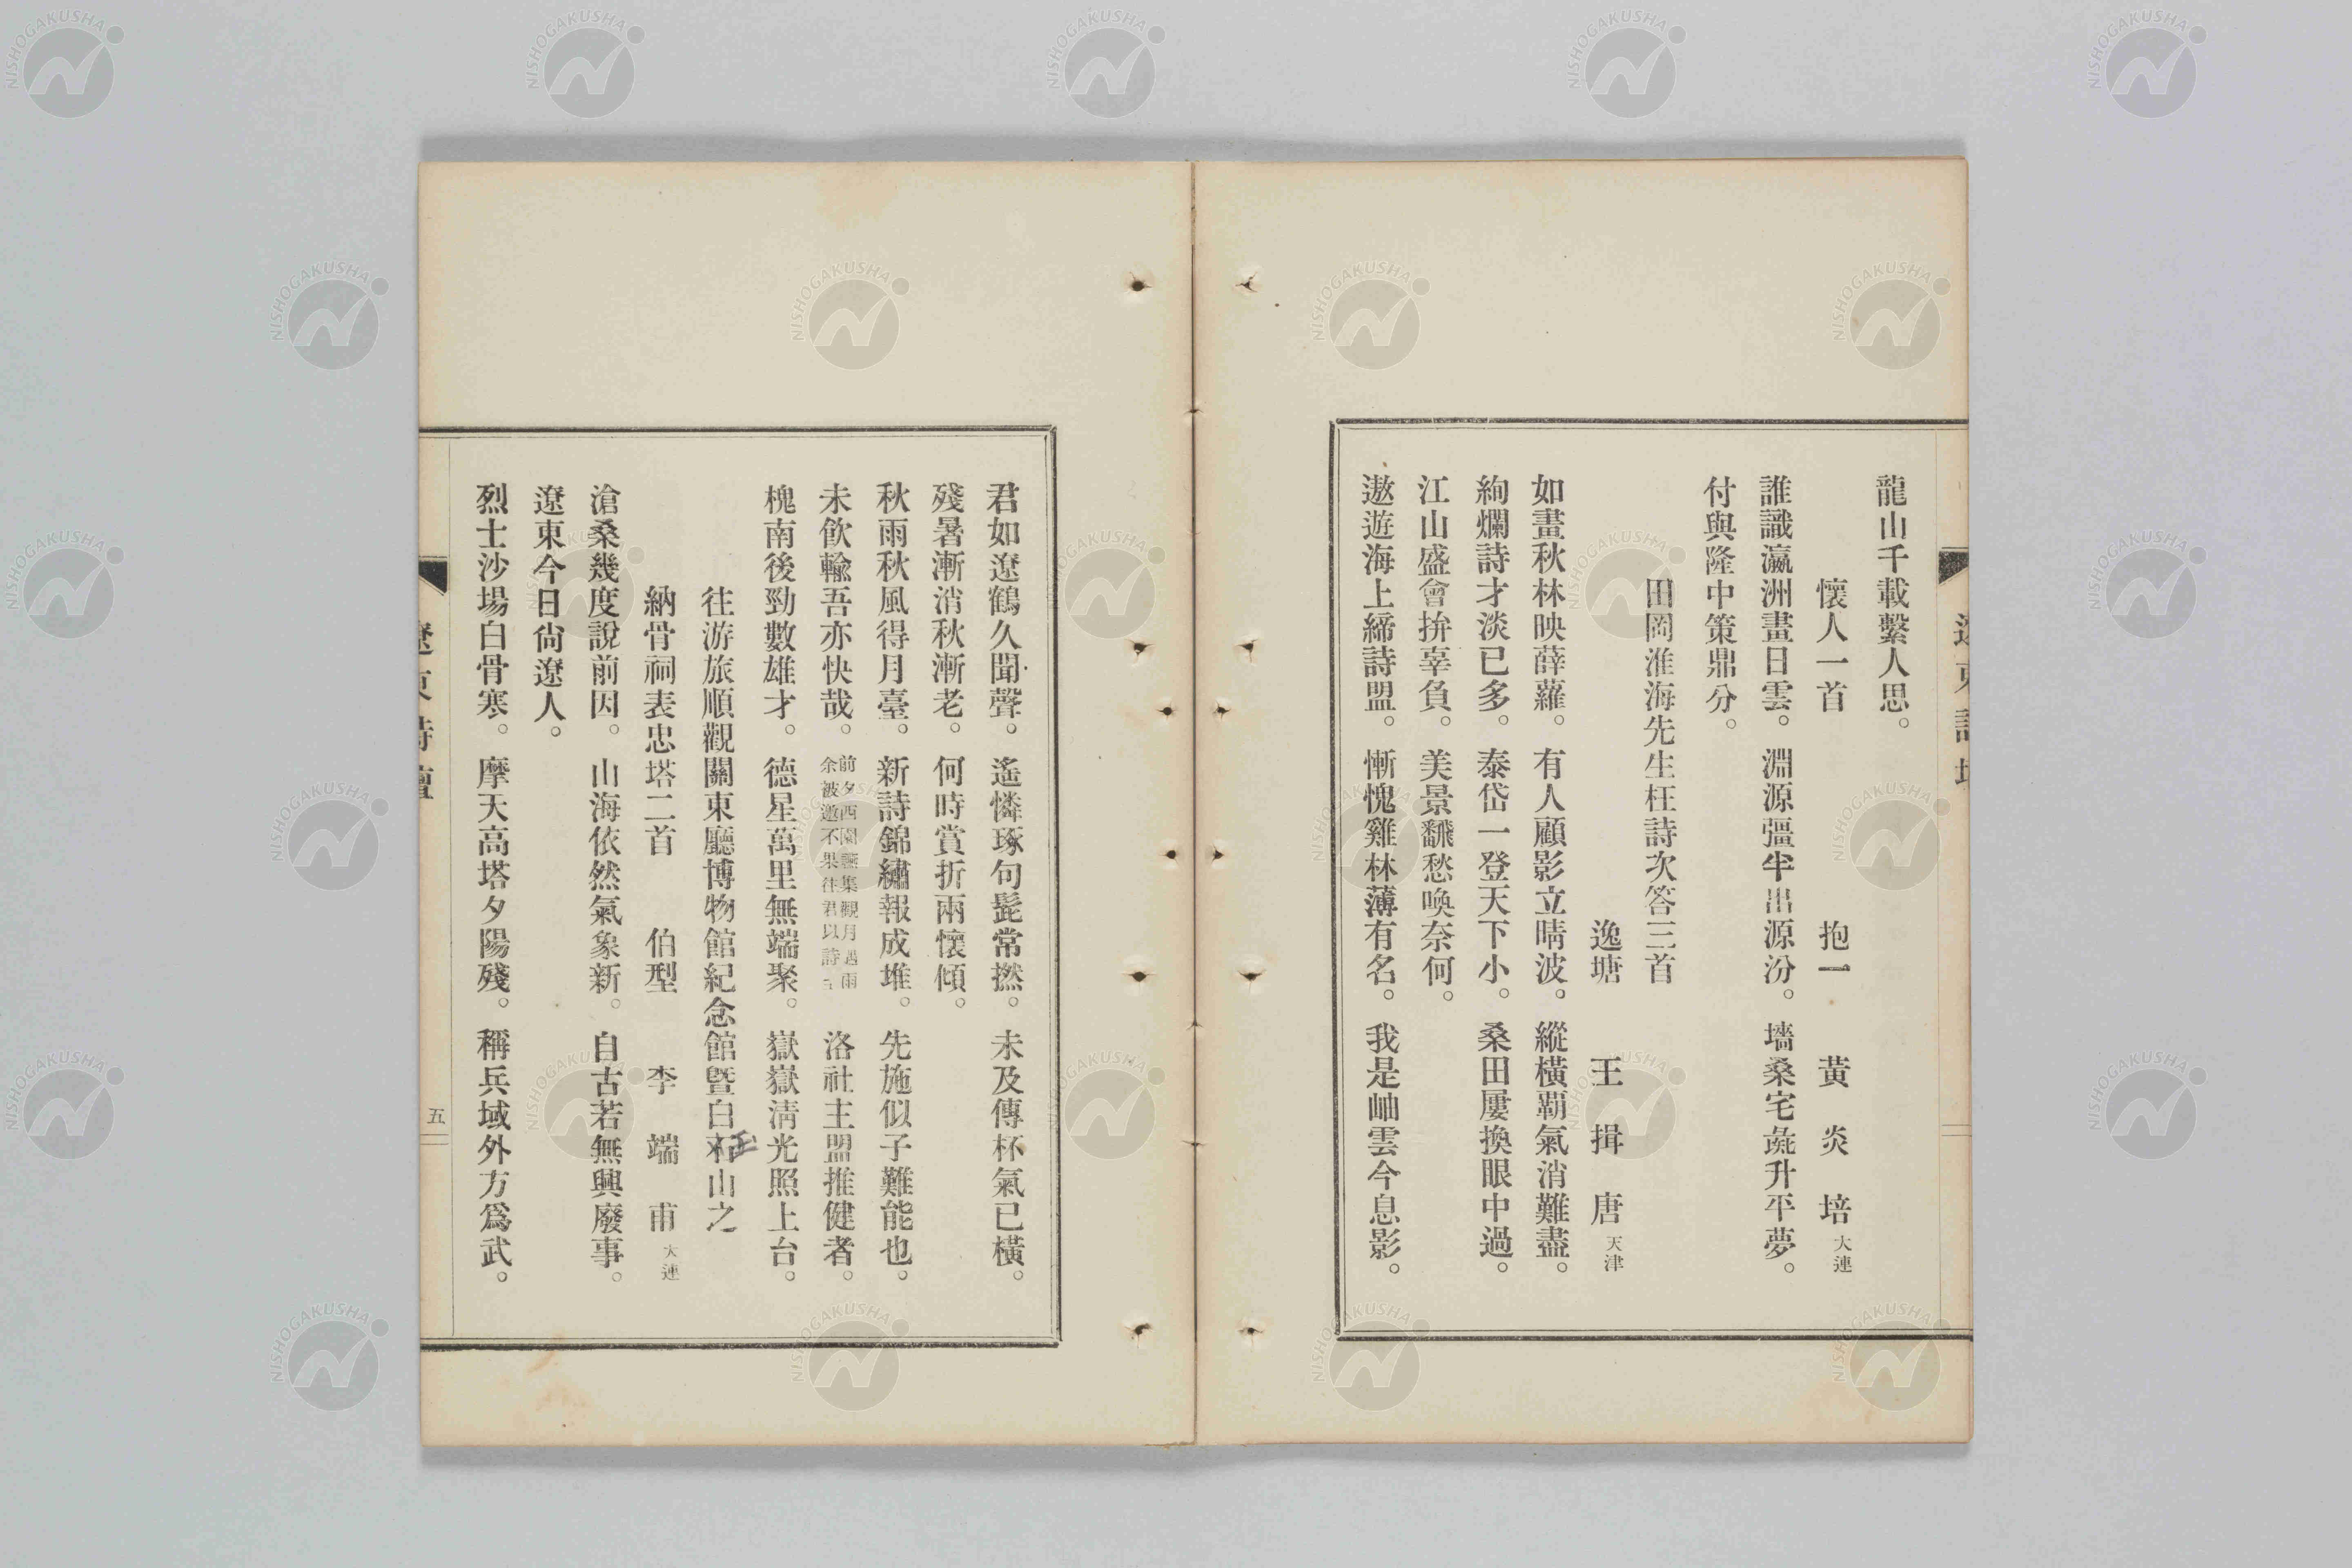 龍山千載繫人思。
懷人一首　抱一　黃炎培 大連
誰識瀛洲晝日雲。淵源彊半出源汾。墻桑宅彘升平夢。
付與隆中策鼎分。
田岡淮海先生枉詩次答三首
逸塘　王揖唐 天津
如畫秋林映薜蘿。有人顧影立晴波。縱橫霸氣消難盡。
絢爛詩才淡已多。泰岱一登天下小。桑田屢換眼中過。
江山盛會拚辜負。美景飜愁喚奈何。
遨遊海上締詩盟。慚愧雞林薄有名。我是岫雲今息影。
君如遼鶴久聞聲。遙憐琢句髭常撚。未及傳杯氣已橫。
殘暑漸消秋漸老。何時賞折兩懷傾。
秋雨秋風得月臺。新詩錦繡報成堆。先施似子難能也。
未飲輸吾亦快哉。前夕西園讌集觀月遇雨余被邀不果往君以詩 洛社主盟推健者。
槐南後勁數雄才。德星萬里無端聚。嶽嶽清光照上台。
往游旅順觀關東廳博物館紀念館曁白玉山之
納骨祠表忠塔二首　伯型　李端甫 大連
滄桑幾度說前因。山海依然氣象新。自古若無興廢事。
遼東今日尙遼人。
烈士沙場白骨寒。摩天高塔夕陽殘。稱兵域外方爲武。
遼東詩壇
五
NISHOGAKUSHA